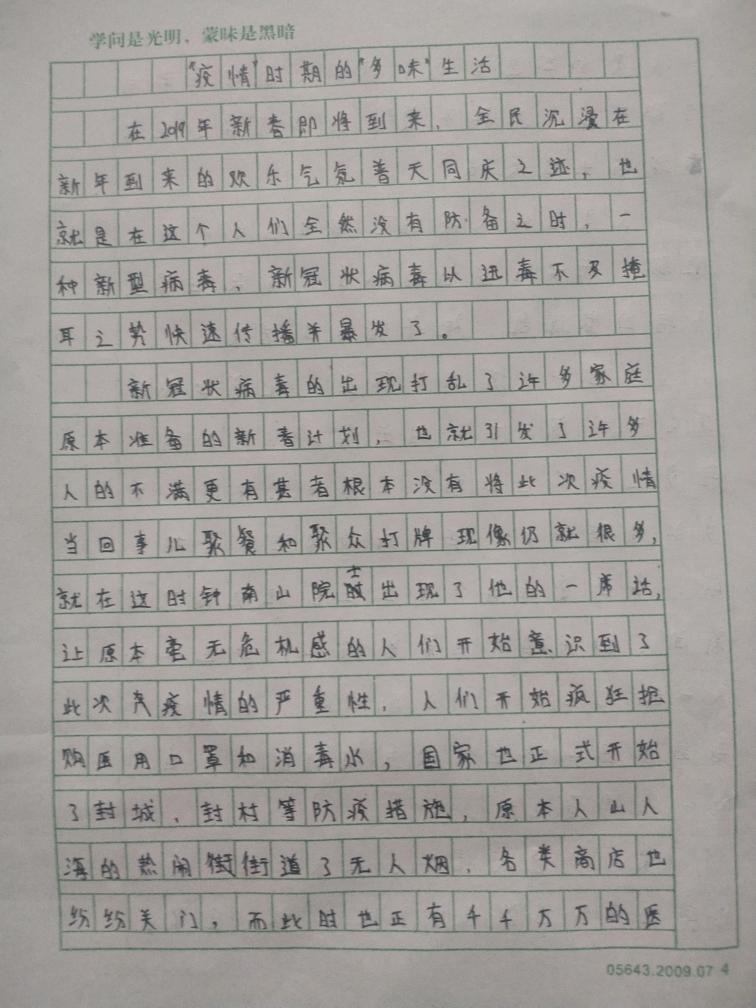 学问是光明，蒙昧是黑暗
"疫情"时期的"多味"生活
在2019年新春即将到来，全民沉浸在
新年到来的欢乐气氛普天同庆之迹，也
就是在这个人们全然没有防备之时，一
种新型病毒，新冠状病毒以迅毒不及掩
耳之势快速传播并暴发了。
新冠状病毒的出现打乱了许多家庭
原本准备的新春计划，也就引发了许多
人的不满更有甚者根本没有将此次疫情
当回事儿聚餐和聚众打牌现像仍就很多，
就在这时钟南山院士出现了他的一席话，
让原本毫无危机感的人们开始意识到了
此次疫情的严重性，人们开始疯狂抢
购医用口罩和消毒水，国家也正式开始
了封城、封村等防疫措施，原本人山人
海的热闹街街道了无人烟，各类商店也
纷纷关门，而此时也正有千千万万的医
05643.2009.07 4